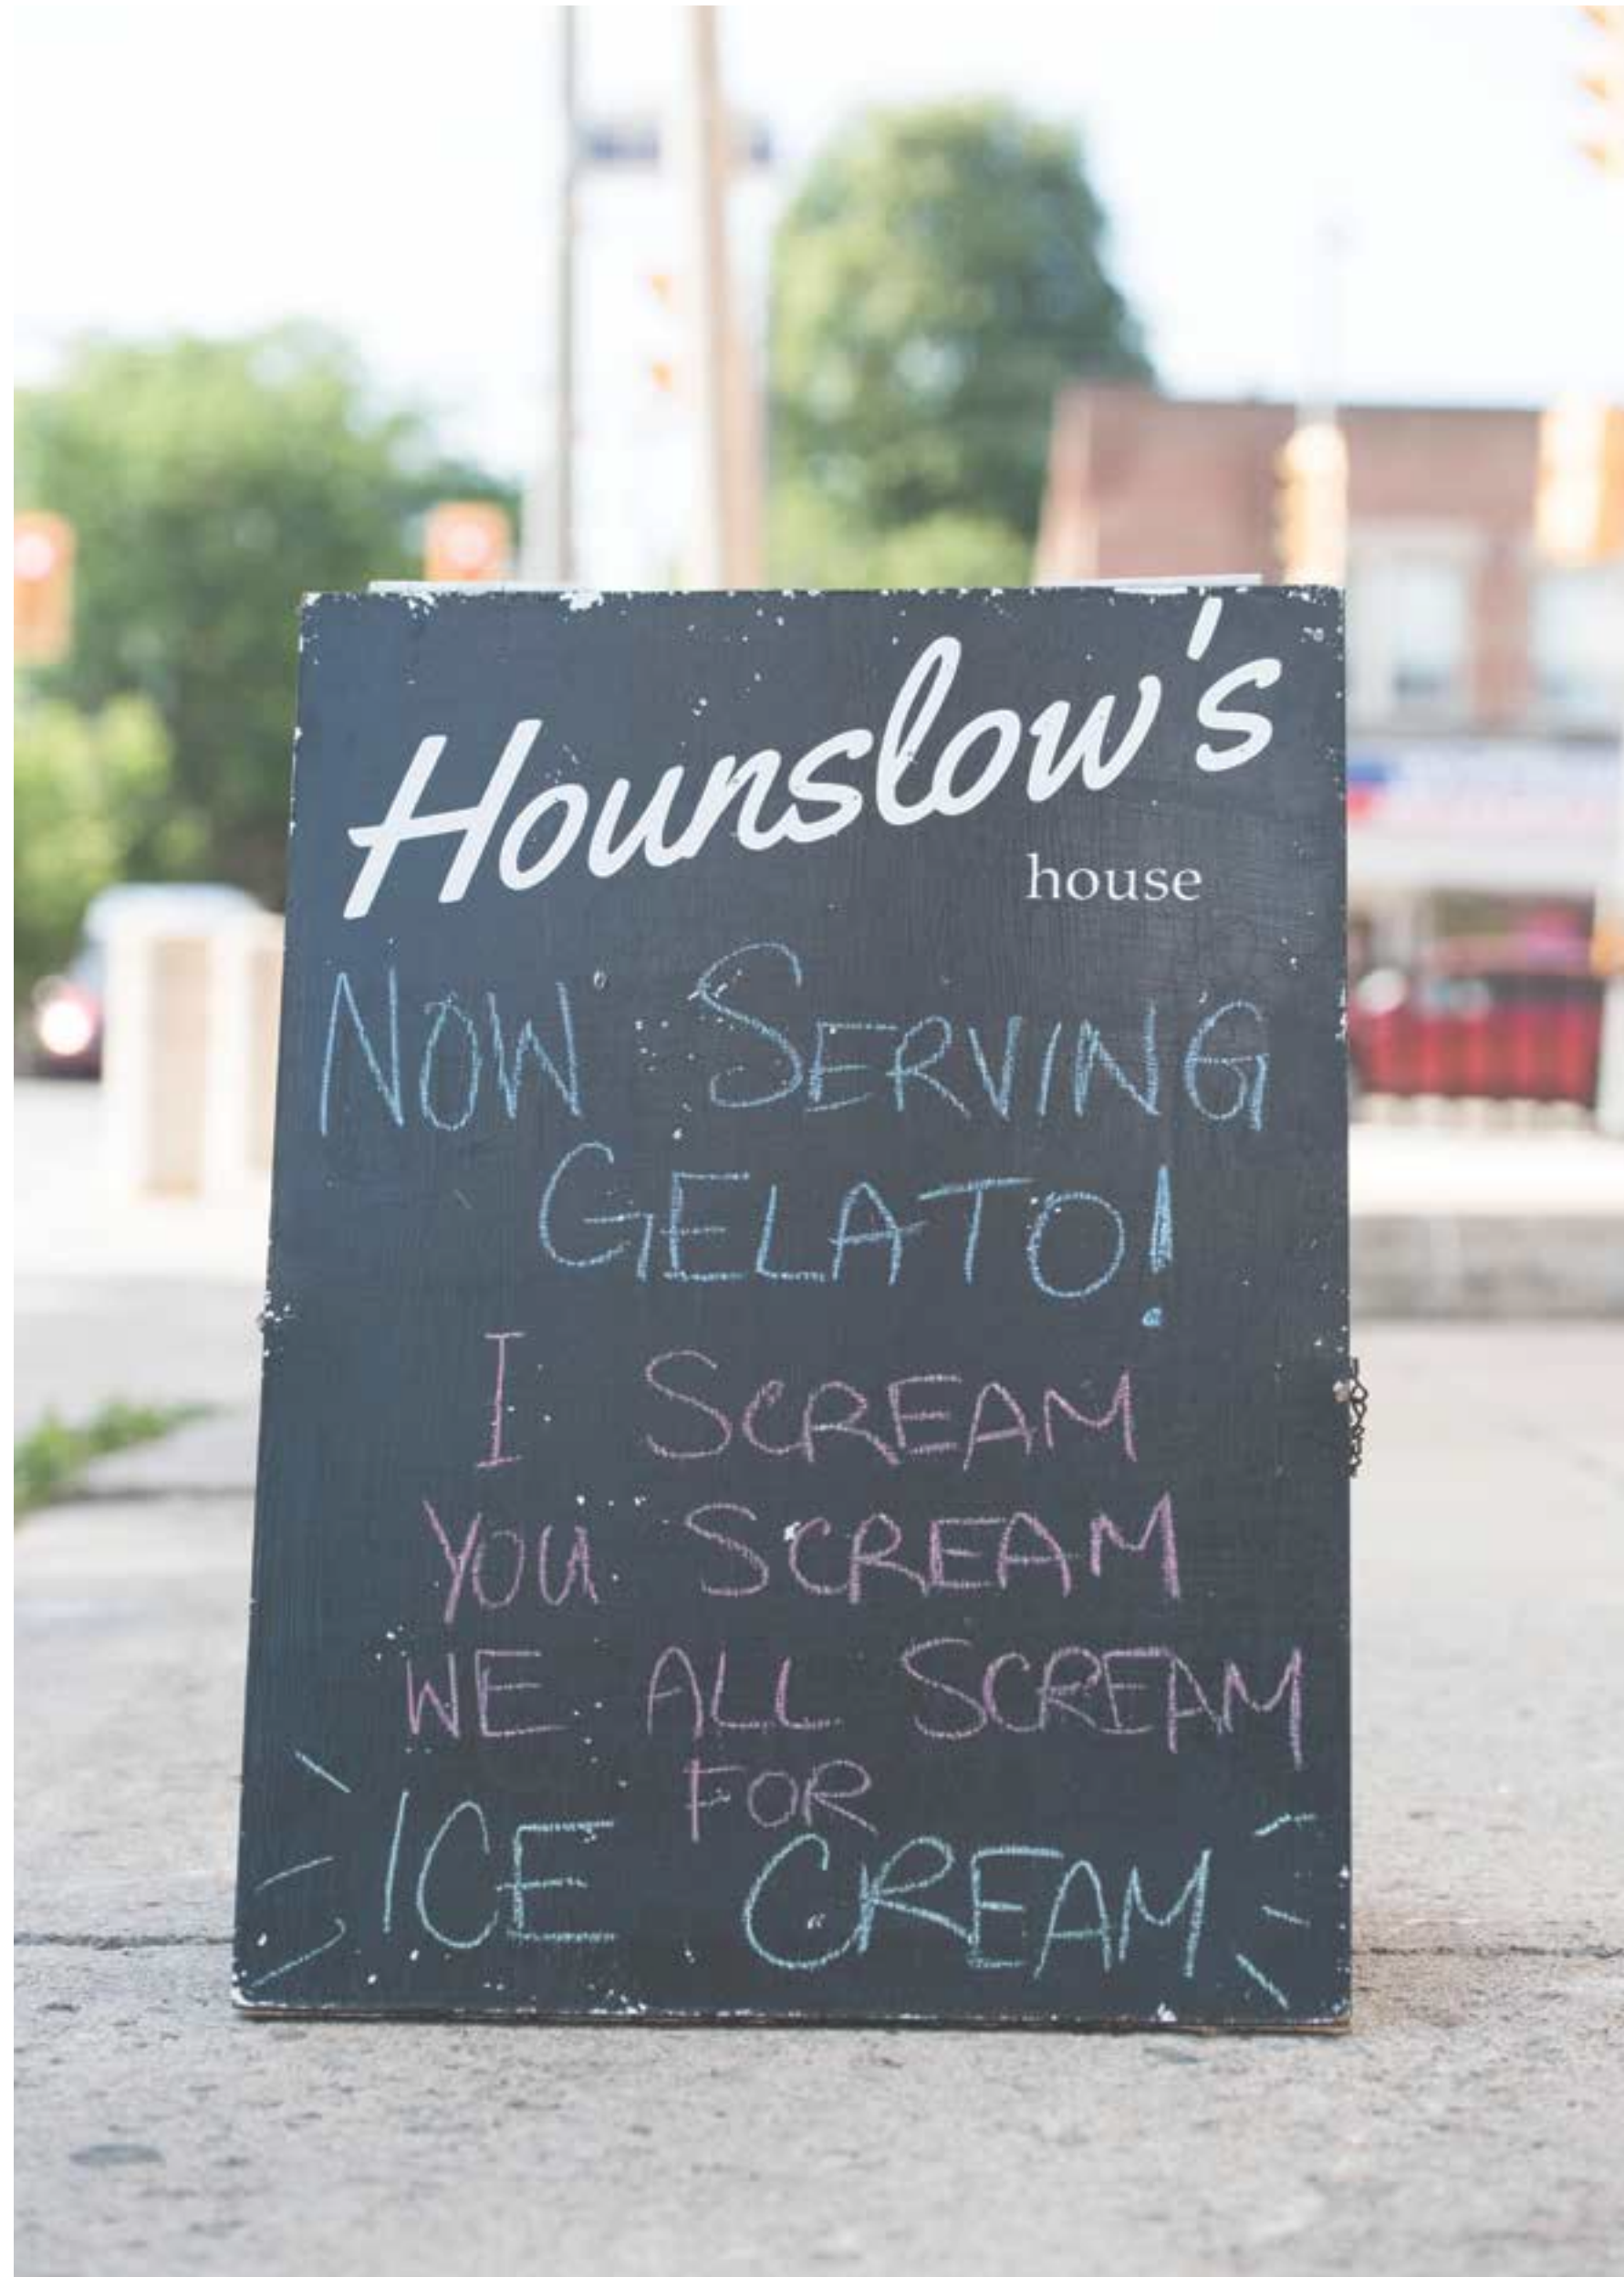 Hounslow's
house
NOW SERVING
GELATO!
I SCREAM
YOU SCREAM
WE ALL SCREAM
FOR
ICE CREAM